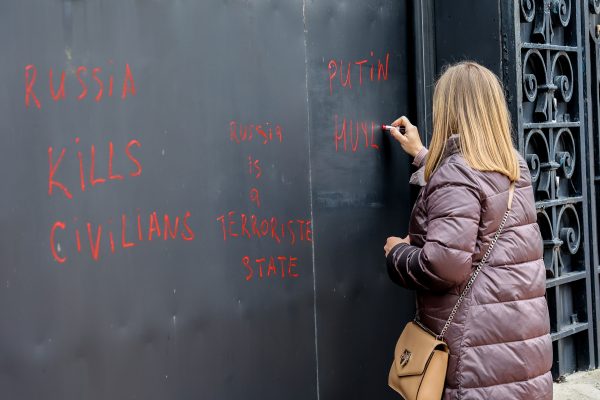 RUSSIA
KILLS
CIVILIANS
RUSSIA
is
a
TERRORISTE
STATE
PUTIN
HUYL